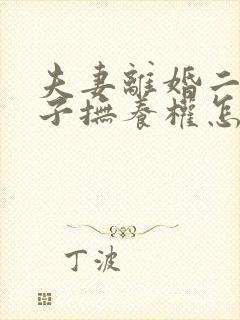 夫妻離婚二
子撫養權怎
丁波